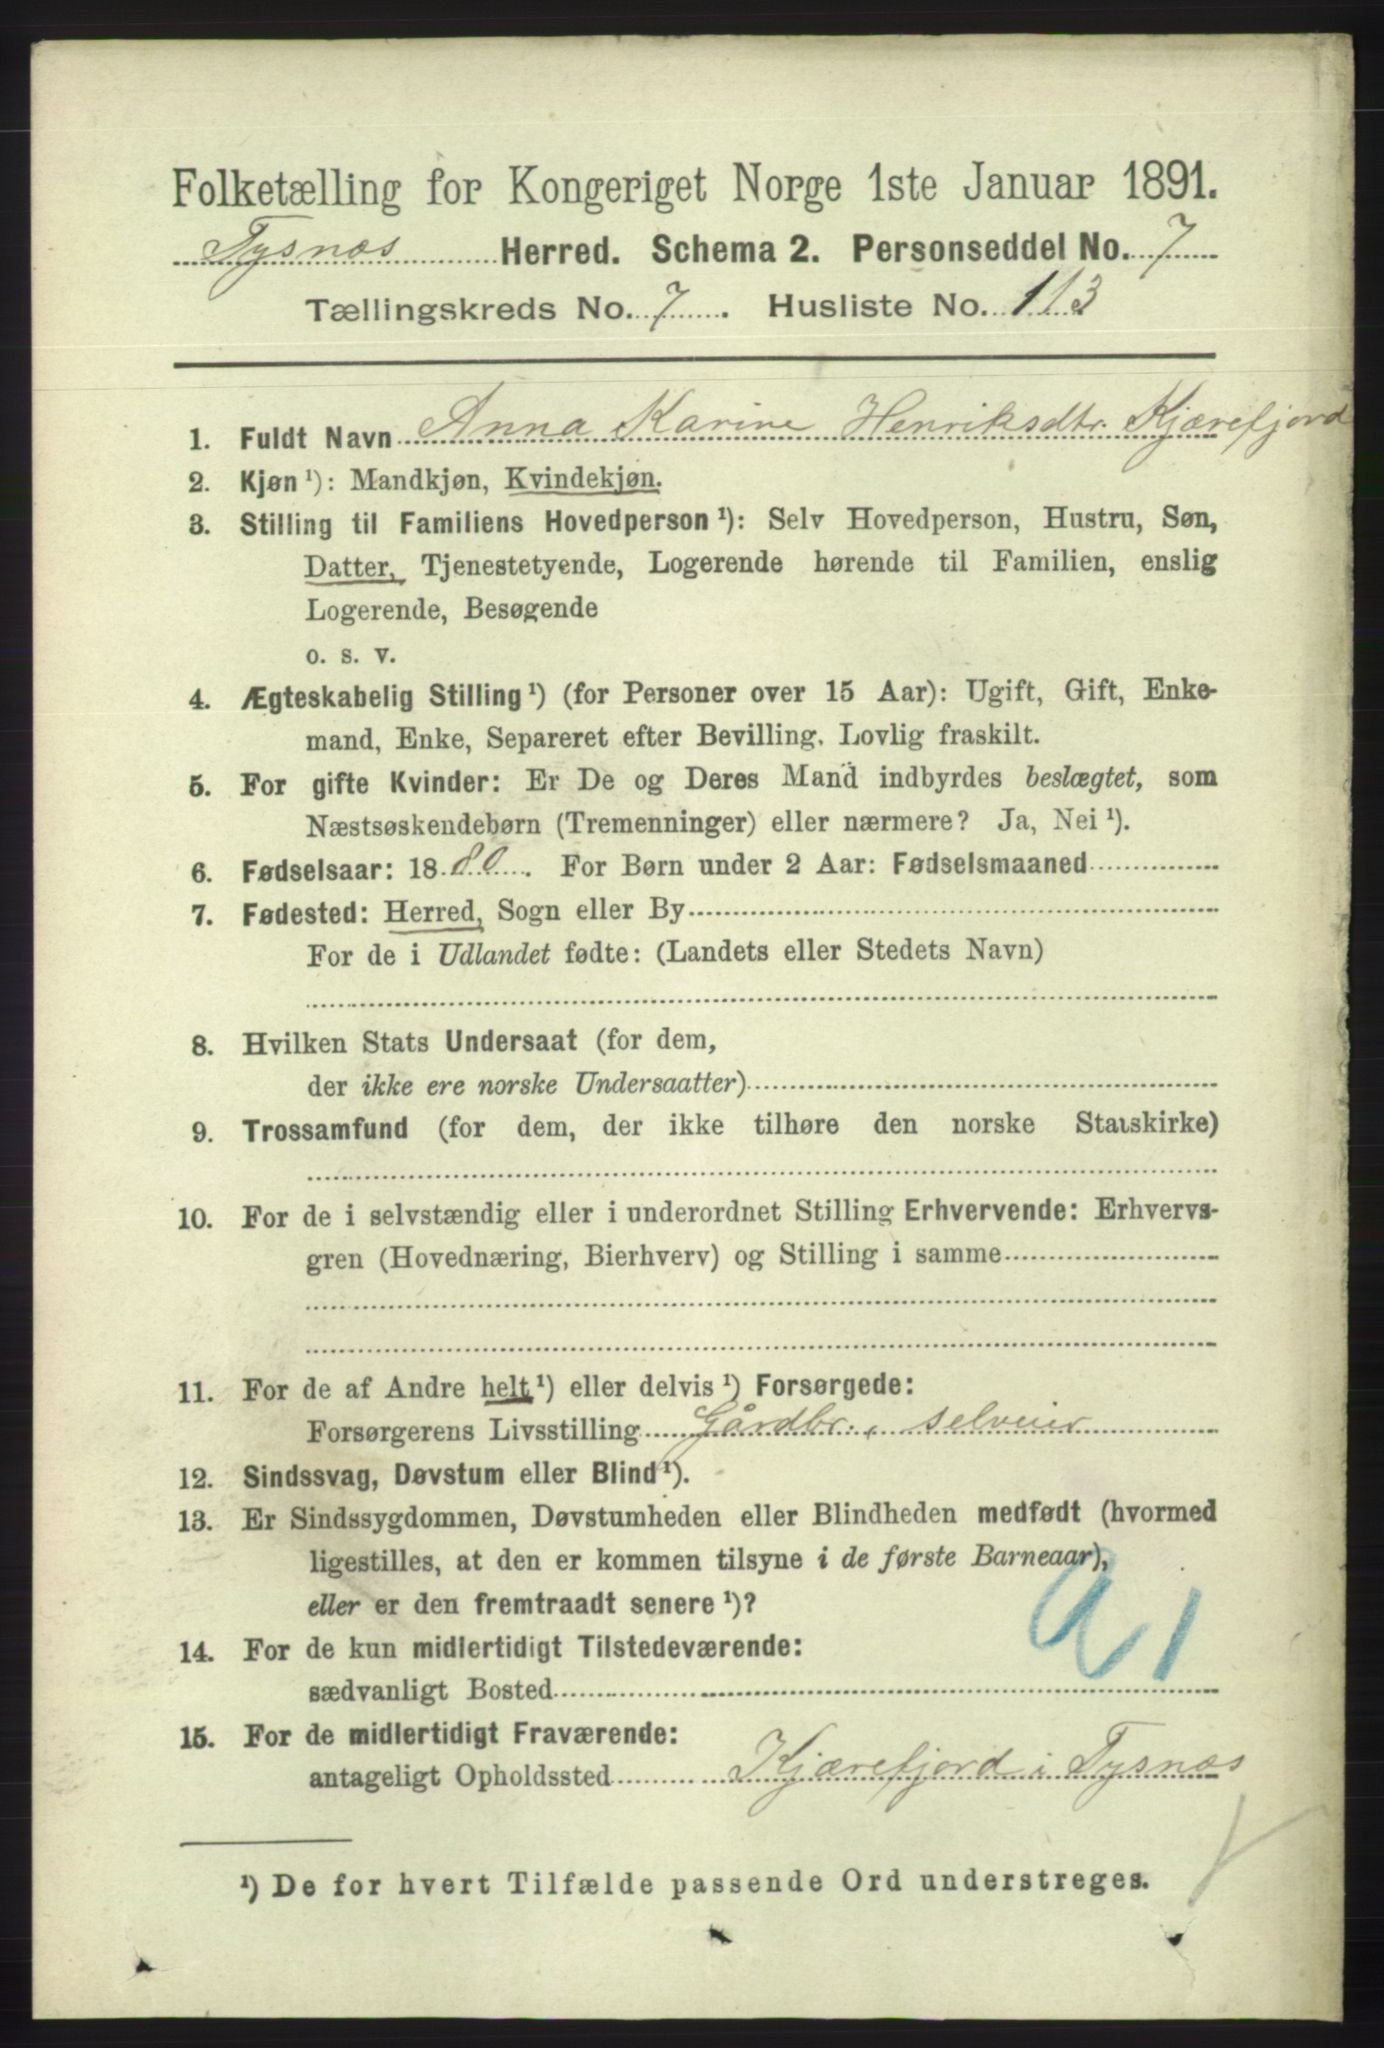 Folketælling for Kongeriget Norge 1ste Januar 1891.
Tysnæs Herred. Schema 2. Personseddel No. 7
Tællingskreds No. 7. Husliste No. 113
1. Fuldt Navn Anna Karine Henriksdtr. Kjærefjord
2. Kjøn ¹): Mandkjøn, Kvindekjøn.
3. Stilling til Familiens Hovedperson ¹): Selv Hovedperson, Hustru, Søn,
Datter, Tjenestetyende, Logerende hørende til Familien, enslig
Logerende, Besøgende
o. s. v.
4. Ægteskabelig Stilling ¹) (for Personer over 15 Aar): Ugift, Gift, Enke-
mand, Enke, Separeret efter Bevilling. Lovlig fraskilt.
5. For gifte Kvinder: Er De og Deres Mand indbyrdes beslægtet, som
Næstsøskendebørn (Tremenninger) eller nærmere? Ja, Nei ¹).
6. Fødselsaar: 1880. For Børn under 2 Aar: Fødselsmaaned
7. Fødested: Herred, Sogn eller By
For de i Udlandet fødte: (Landets eller Stedets Navn)
8. Hvilken Stats Undersaat (for dem,
der ikke ere norske Undersaatter)
9. Trossamfund (for dem, der ikke tilhøre den norske Statskirke)
10. For de i selvstændig eller i underordnet Stilling Erhvervende: Erhvervs-
gren (Hovednæring, Bierhverv) og Stilling i samme
11. For de af Andre helt ¹) eller delvis ¹) Forsørgede:
Forsørgerens Livsstilling Gårdbr., selveier
12. Sindssvag, Døvstum eller Blind ¹).
13. Er Sindssygdommen, Døvstumheden eller Blindheden medfødt (hvormed
ligestilles, at den er kommen tilsyne i de første Barneaar),
eller er den fremtraadt senere ¹)?
14. For de kun midlertidigt Tilstedeværende:
sædvanligt Bosted
15. For de midlertidigt Fraværende:
antageligt Opholdssted Kjærefjord i Tysnæs
¹) De for hvert Tilfælde passende Ord understreges.